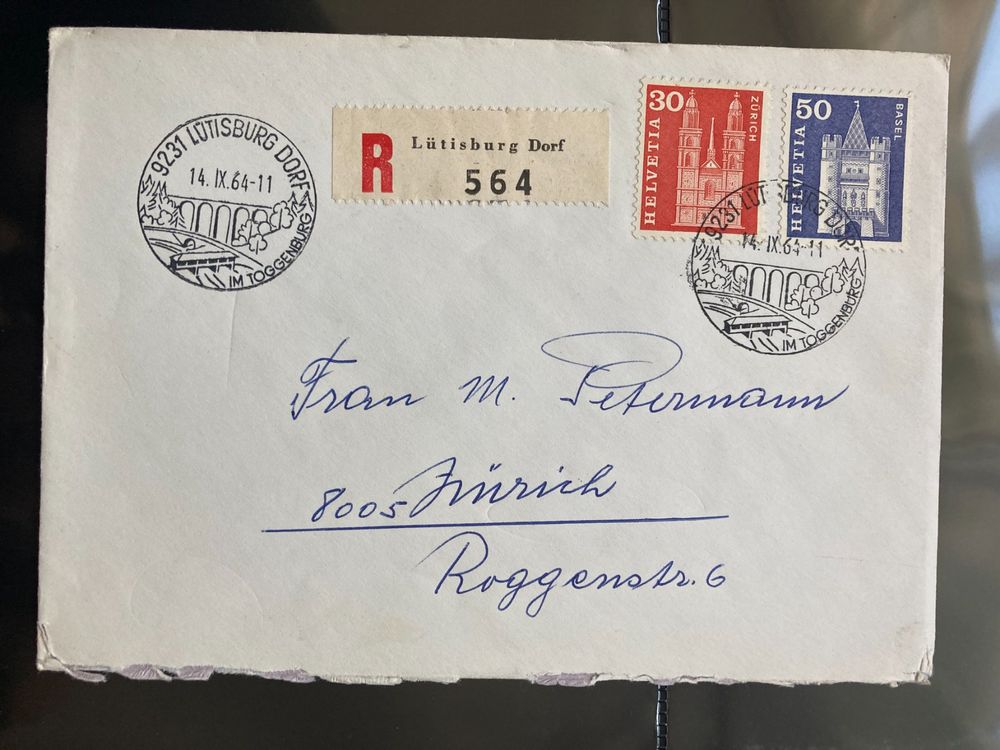 9231 LÜTISBURG DORF
14. IX. 64-11
IM TOGGENBURG
R Lütisburg Dorf
564
30 HELVETIA ZÜRICH
50 HELVETIA BASEL
9231 LÜTISBURG DORF
14. IX. 64-11
IM TOGGENBURG
Frau M. Petermann
8005 Zürich
Roggenstr. 6